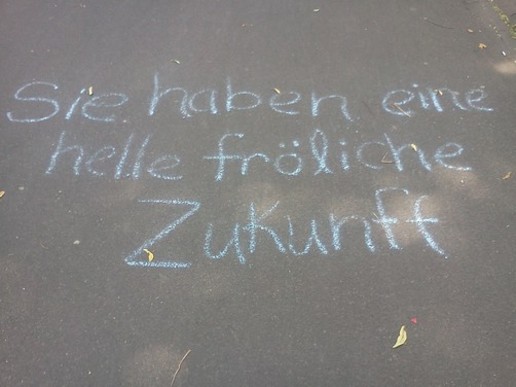 Sie haben eine
helle fröliche
Zukunft